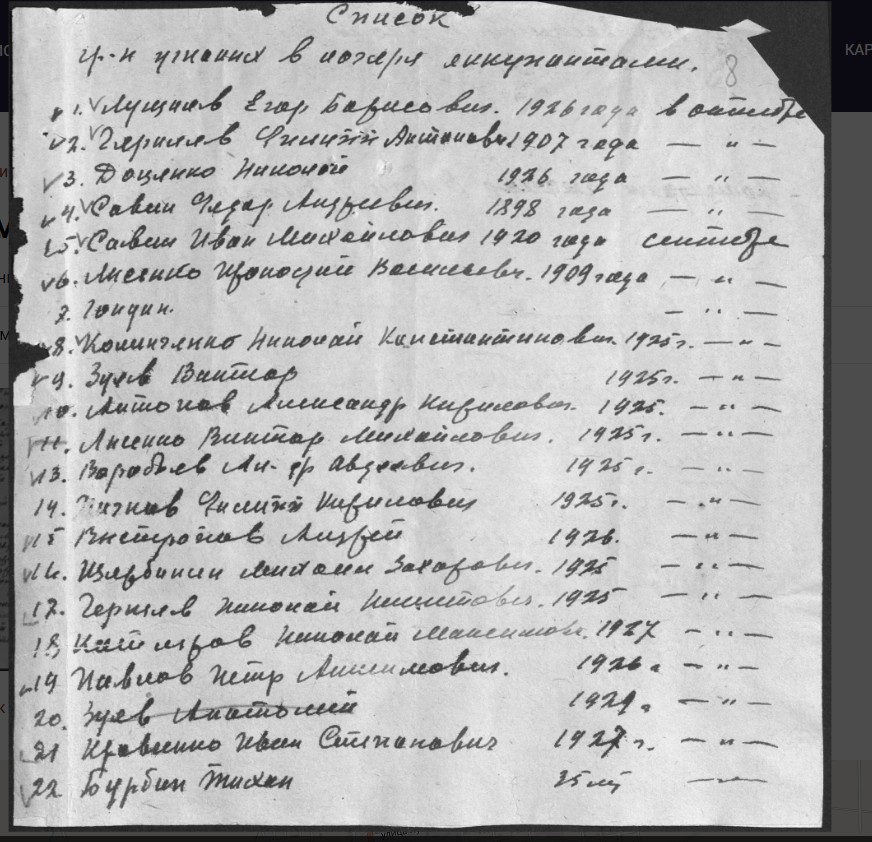 Список
гр-н угнаних в лагеря оккупантами.
8
КАР
1. Лущаев Егор Борисович. 1926 года в октябре
2. Черняев Филипп Антонович 1907 года — " —
3. Доценко Николай 1926 года — " —
4. Савин Федор Андреевич. 1898 года — " —
5. Савин Иван Михайлович 1920 года сентябре
6. Лисенко Прокофий Васильевич. 1909 года — " —
7. — " —
8. Калиниченко Николай Константинович. 1925 г. — " —
9. Зуев Виктор 1925 г. — " —
10. Антонов Александр Кирилович. 1925. — " —
11. Лисенко Виктор Михайлович. 1925 г. — " —
13. Воробьев Ал-др Авдеевич. 1925 г. — " —
14. Филипп Кирилович 1925 г. — " —
15 Андрей 1926. — " —
16. Щербинин Михаил Захарович. 1925 — " —
17. Черняев Николай Никитович. 1925 — " —
18 Николай Максимович. 1927 — " —
19 Павлов Петр Анисимович. 1926. — " —
20. Зуев Анатолий 1929. — " —
21 Кравченко Иван Степанович 1927 г. — " —
22. Бурбин Тихон 35 лет — " —